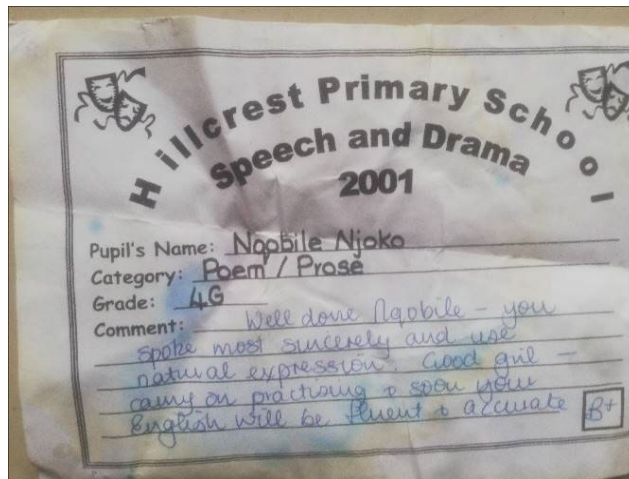 Hillcrest Primary School
Speech and Drama
2001
Pupil's Name: Nqobile Njoko
Category: Poem / Prose
Grade: 4G
Comment: Well done Nqobile – you
spoke most sincerely and use
natural expression. Good girl –
carry on practising & soon your
English will be fluent & accurate B+